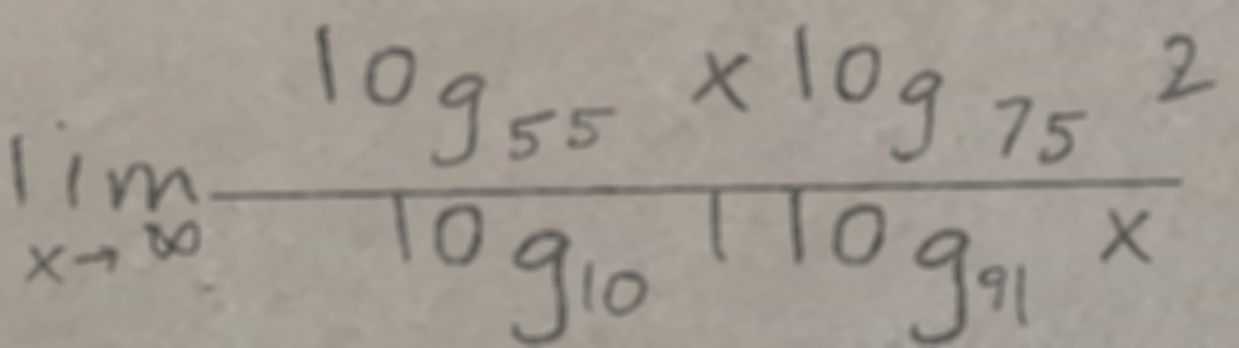 lim x→∞ log₅₅ x log₇₅ 2
log₁₀ 1 log₉₁ x